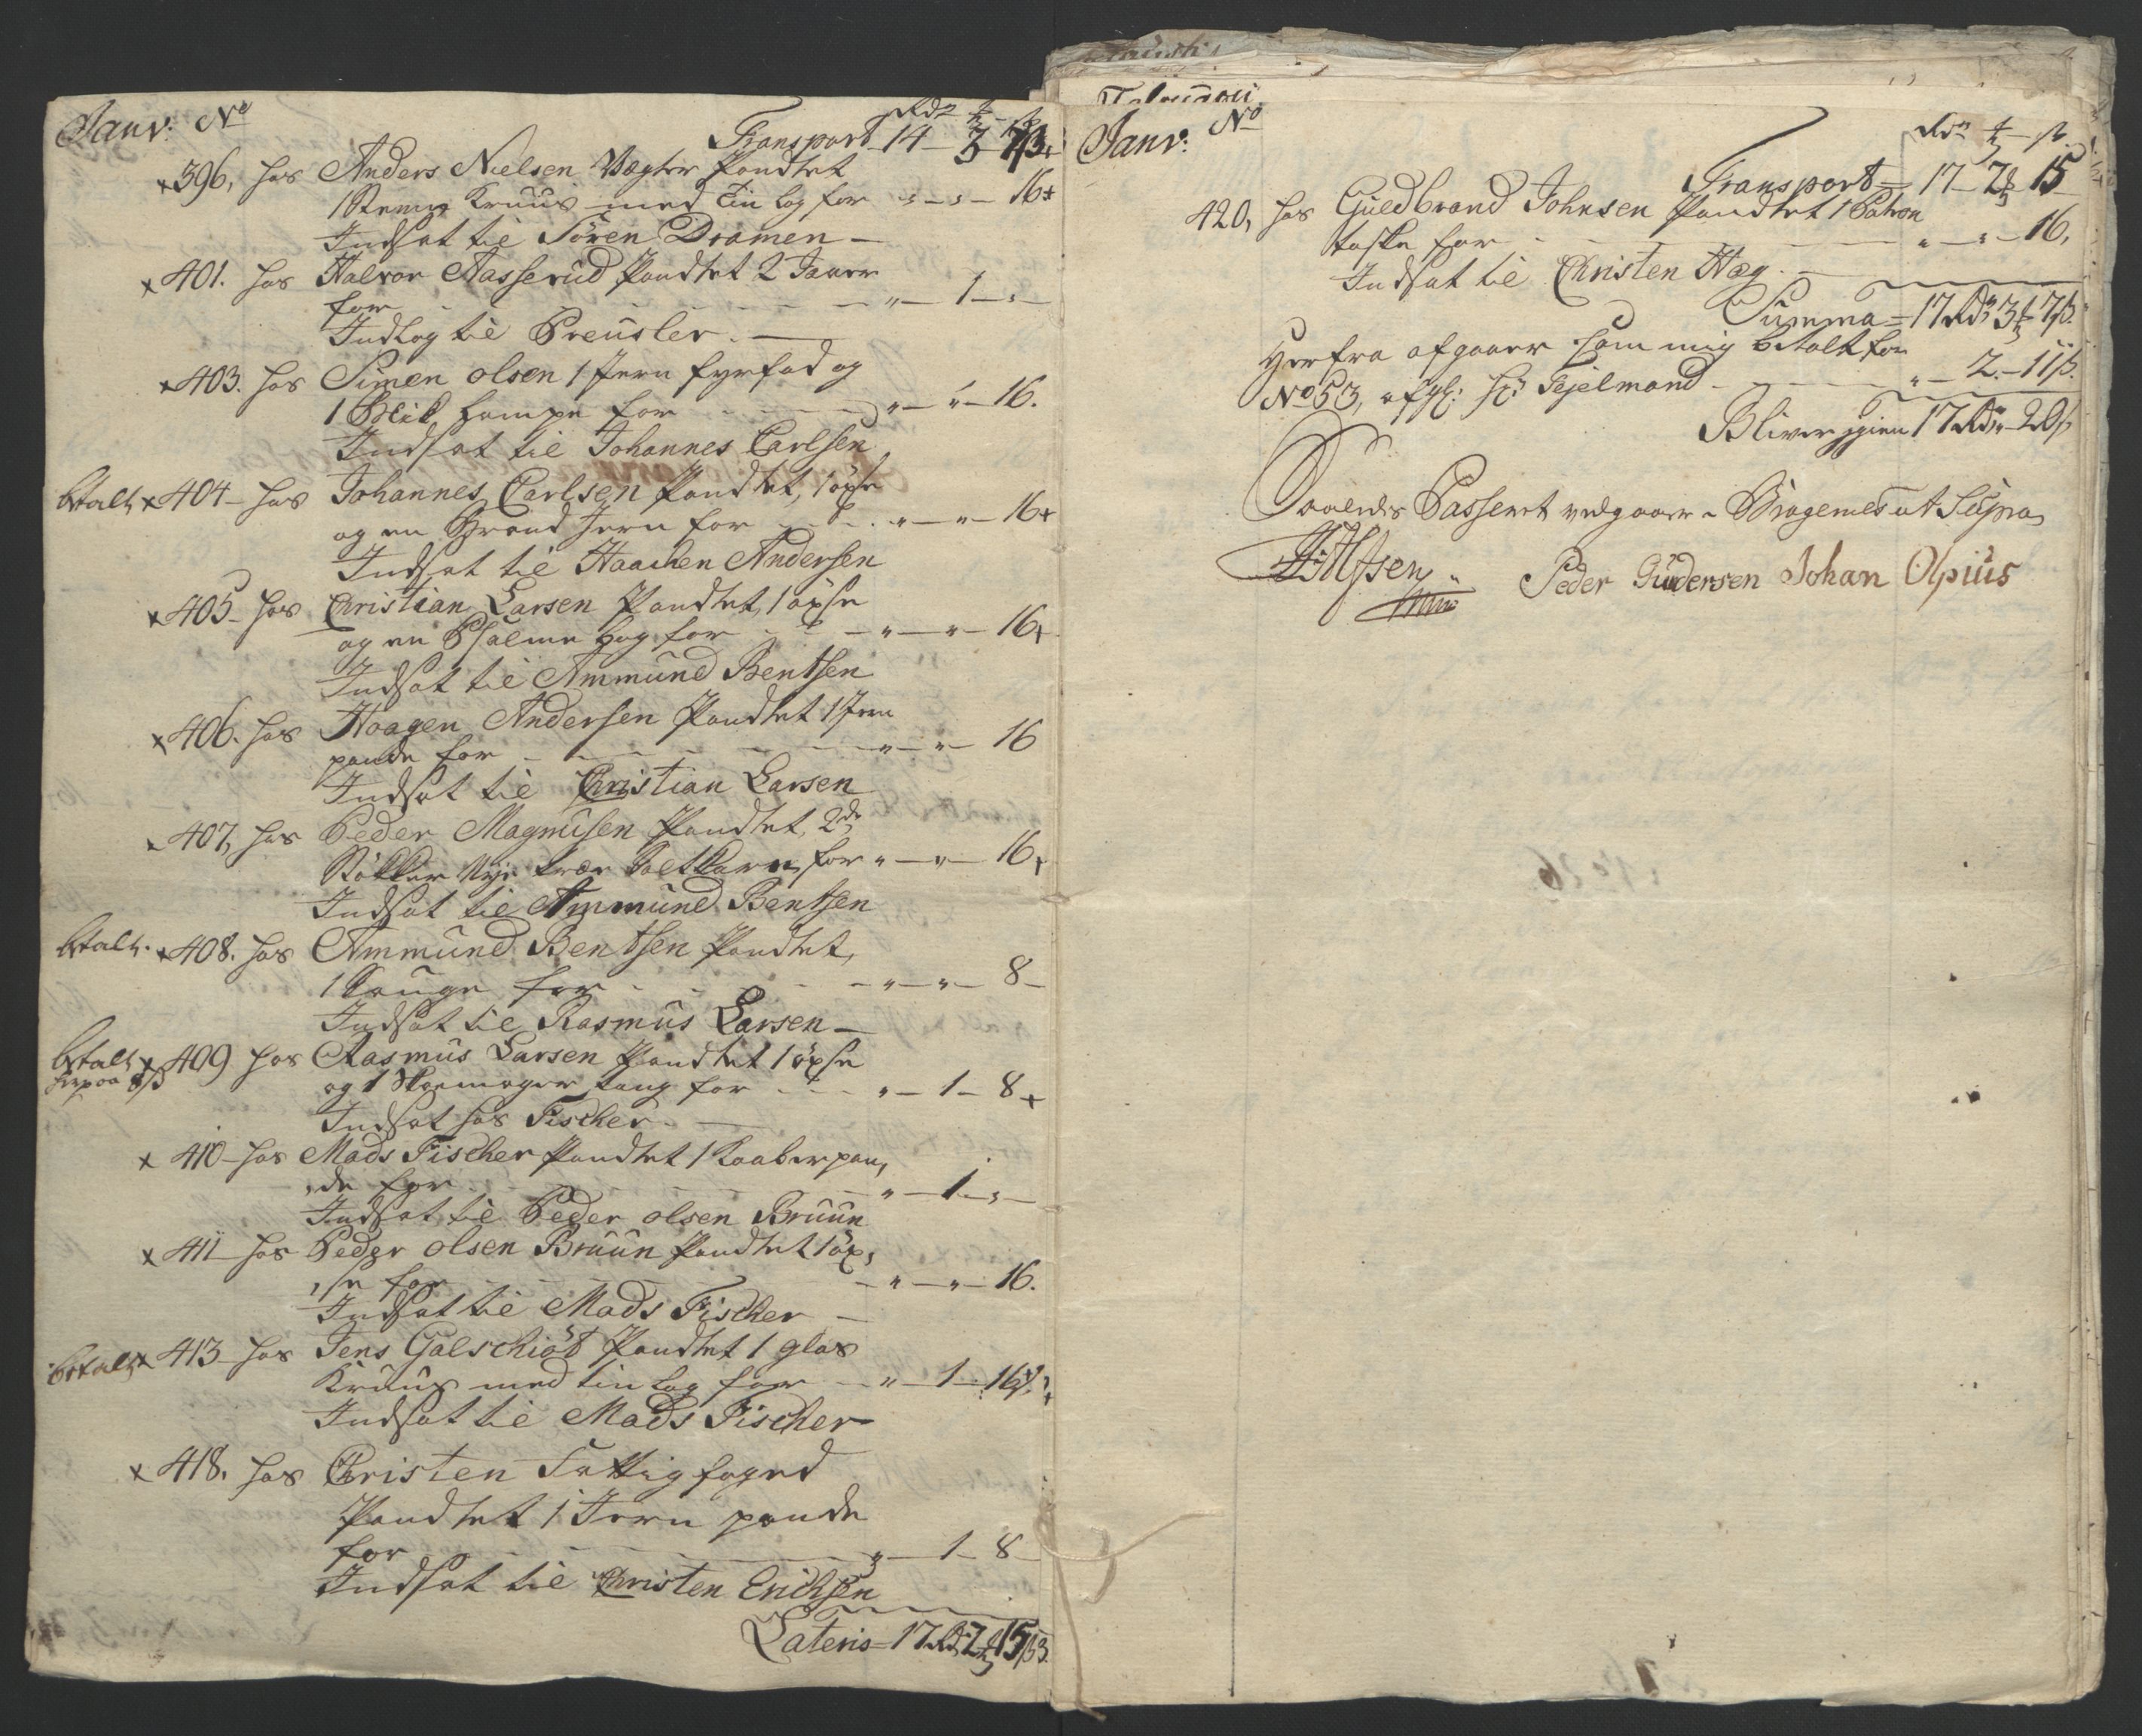 Janv: No
Rdr
Transport 14 3
396, hos Anders Nielsen Vægter Pandtet
1 Steen Kruus med Tin log for " — " — 16
Indsat til Sören Dramen —
401. hos Halvor Aasserud Pandtet 2
for — " — 1 — "
Indlog til Preusler. —
403. hos Simen olsen 1 Jern fyrfad og
1 Blik Lampe for — " — " — 16.
Indsat til Johannes Carlsen
btalt 404 hos Johannes Carlsen Pandtet, 1 öxse
og en Brand Jern for — " — " — 16
Indsat til Haachen Andersen
405 hos Christian Larsen Pandtet, 1 öxse
og en Psalme bog for — " — " — 16
Indsat til Ammund Bentsen
406. hos Haagen Andersen Pandtet 1 Jern
pande for — " — " — 16
Indsat til Christian Larsen
407, hos Peder Magnusen Pandtet, 2de
Stökker Nye for " — " — 16
Indsat til Ammund Bentsen
btalt. 408. hos Ammund Bentsen Pandtet,
1 for — " — " — 8 —
Indsat til Rasmus Larsen —
btalt 409 hos Rasmus Larsen Pandtet 1 öxse
herpaa 8 ß
og 1 Skomager tang for — " — 1 — 8
Indsat hos Fischer. —
410 hos Mads Fischer Pandtet 1 Kaaber pan,
,de for — " — 1 — " —
Indsat til Peder olsen Bruun
411 hos Peder olsen Bruun Pandtet 1 öx,
,se for — " — " — 16.
Indsat til Mads Fischer —
betalt 413 hos Jens Galschiöt Pandtet 1 glas
Kruus med tin log for — " — 1 — 16
Indsat til Mads Fischer
418. hos Christen Fattigfoged
Pandtet 1 Jern pande
for — " — 1 — 8 —
Indsat til Christen Erichsen
Lateris = 17 Rdr 2 15 ß
Janv: No
Rdr
Transport = 17 — 2 15
420, hos Guldbrand Johnsen Pandtet 1 Patron
taske for — " — " — 16,
Indsat til Christen Hæg. —
Summa = 17 Rdr 3 7 ß.
Herfra afgaaer som mig betalt for
No 53, afgl: Hr Tejelmand — " — 2. — 11 ß.
Bliver igien 17 Rdr " 20 ß
Saaledes Passeret vedgaaer Bragernes ut Supra
Peder Gudersen Johan Olpius